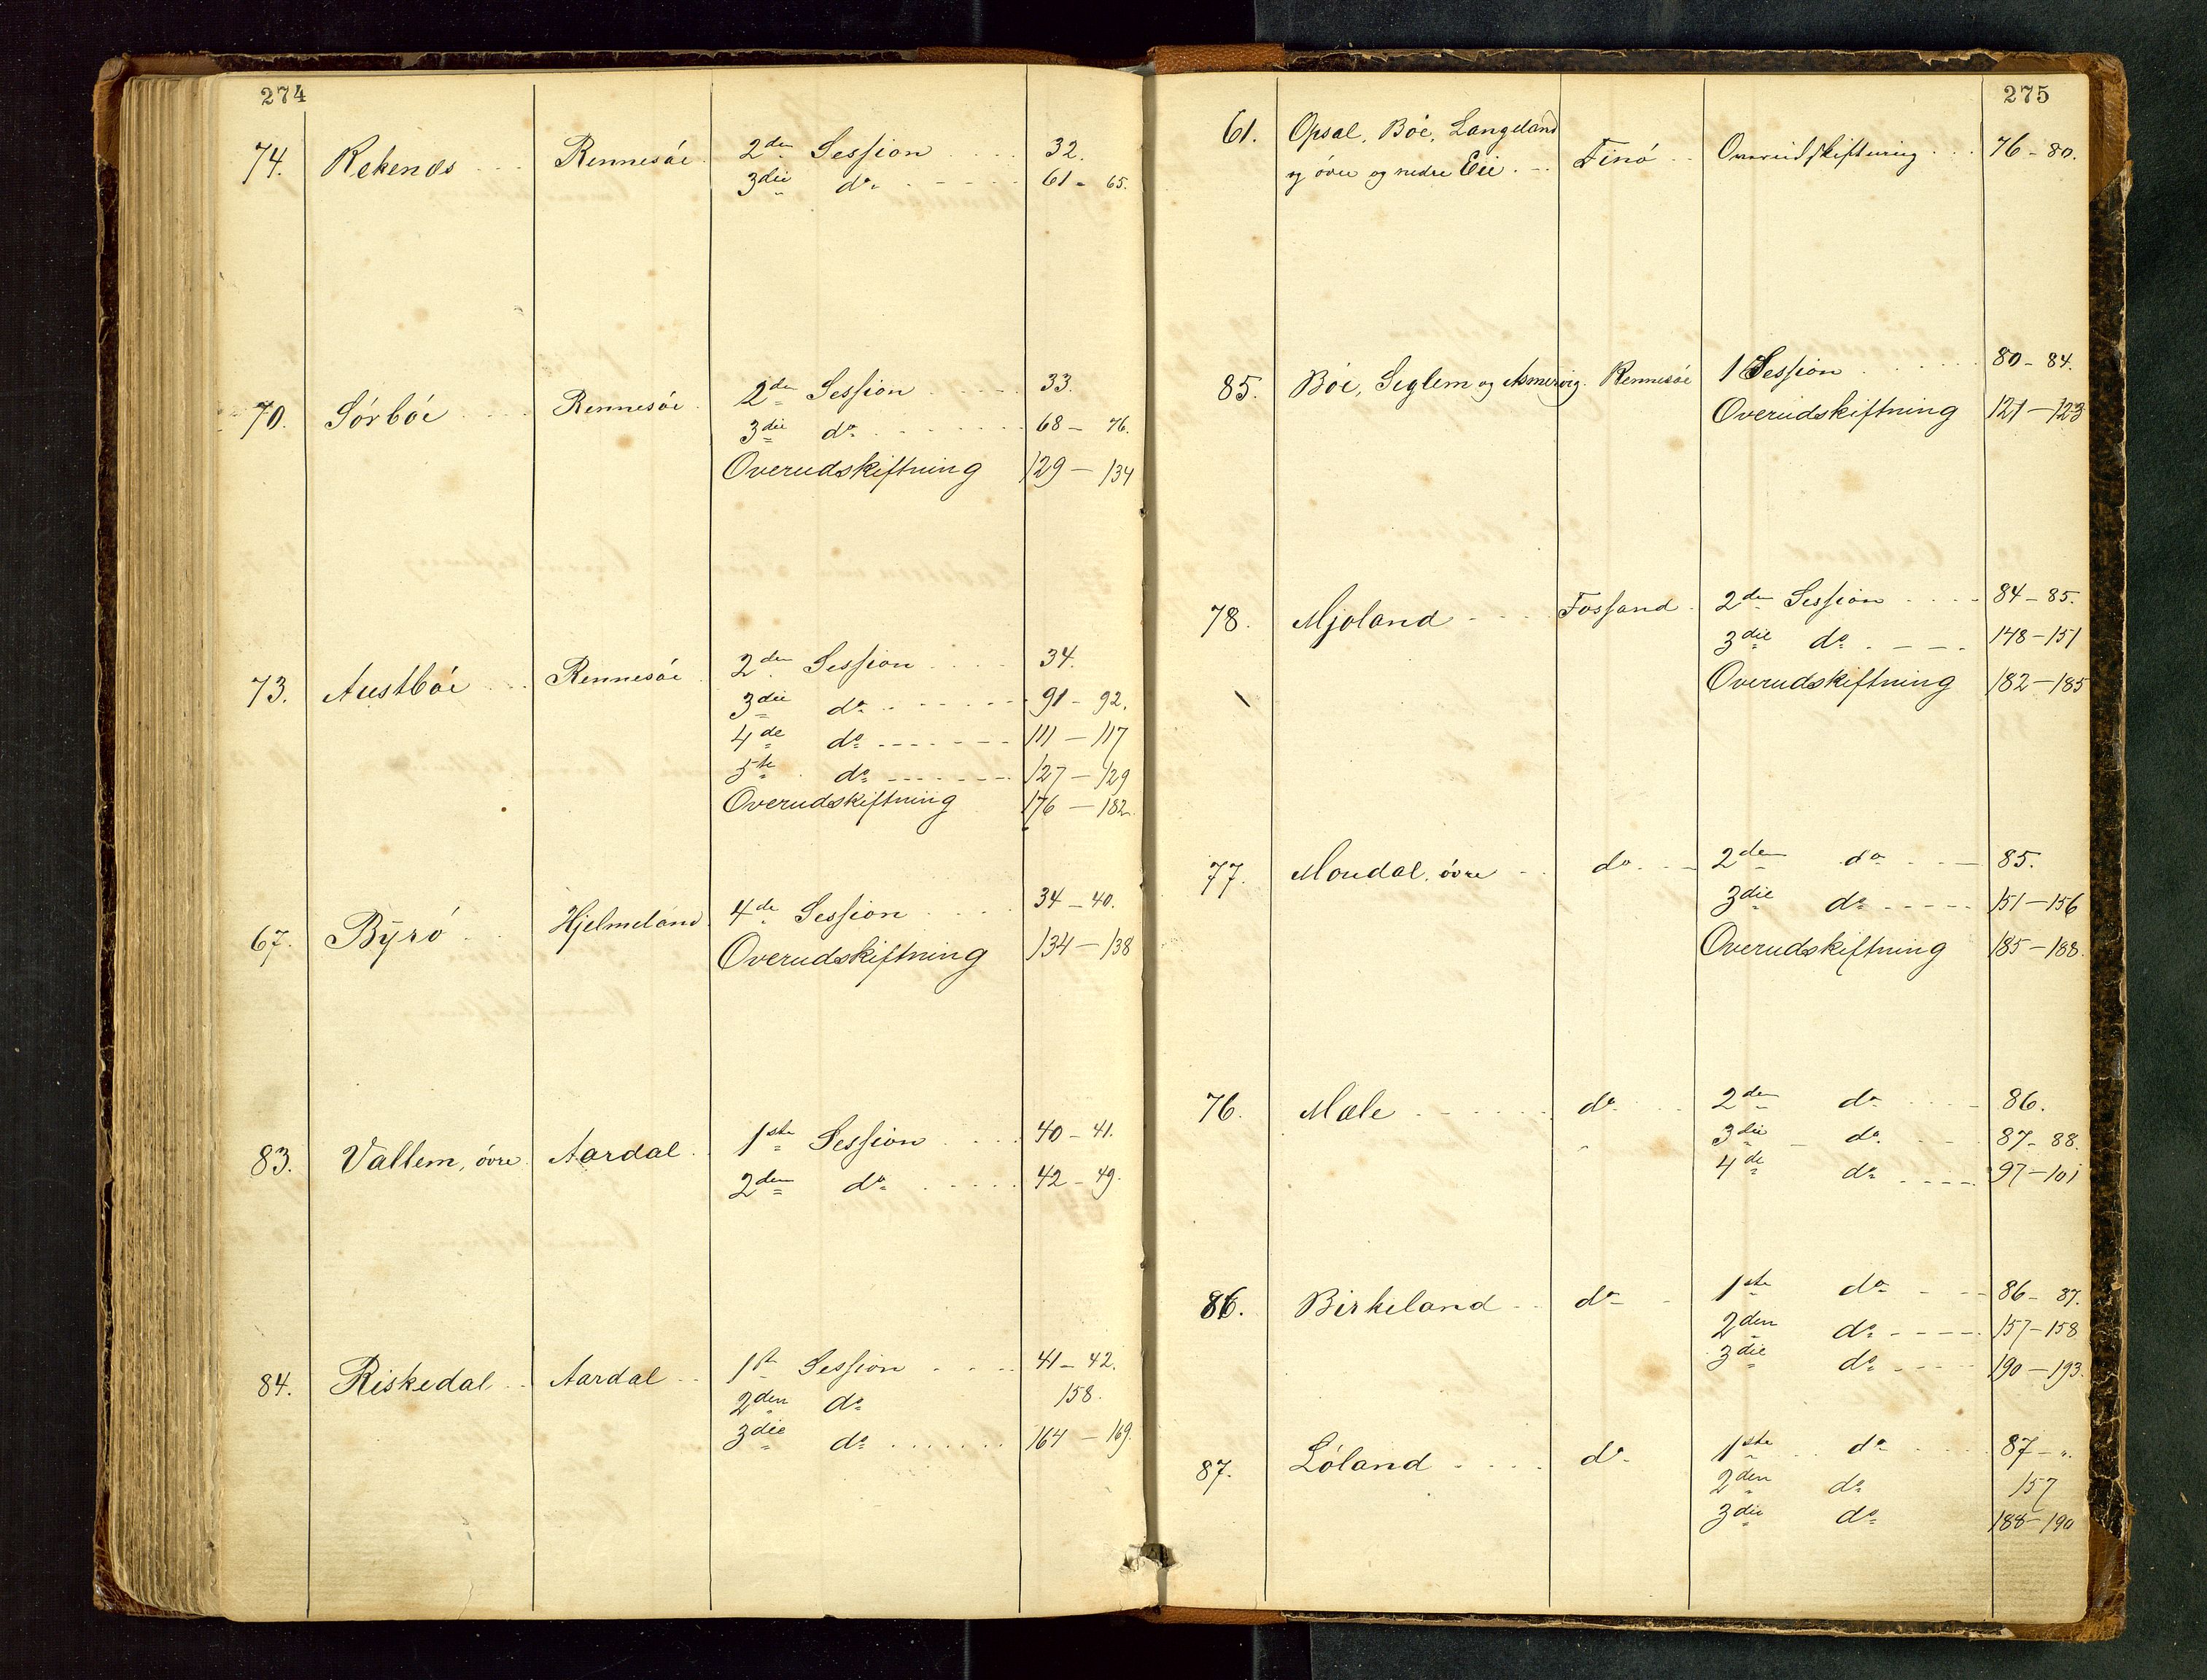 274
74. Rekenæs Rennesöe 2den Session 32.
3die do 61 - 65.
70. Sörböe Rennesöe 2den Session 33.
3die do 68 - 76.
Overudskiftning 129 - 134
73. Austböe Rennesöe 2den Session 34.
3die do 91 - 92.
4de do 111 - 117
5te do 127 - 129
Overudskiftning 176 - 182
67. Byrö Hjelmeland 4de Session 34 - 40.
Overudskiftning 134 - 138
83. Vallem, övre Aardal 1ste Session 40 - 41.
2den do 42 - 49.
84. Riskedal Aardal 1ste Session 41 - 42.
2den do 158.
3die do 164 - 169.
275
61. Opsal, Böe, Langeland
og övre og nedre Eie Finö Overudskiftning 76 - 80.
85. Böe, Seglem og Asmervig Rennesöe 1 Session 80 - 84.
Overudskiftning 121 - 123
78. Mjoland Fossand 2den Session 84 - 85.
3die do 148 - 151
Overudskiftning 182 - 185
77. Moudal, övre do 2den do 85.
3die do 151 - 156
Overudskiftning 185 - 188.
76. Mæle do 2den do 86.
3die do 87 - 88.
4de do 97 - 101
86. Birkeland do 1ste do 86 - 87.
2den do 157 - 158
3die do 190 - 193.
87. Löland do 1ste do 87 - ".
2den do 157
3die do 188 - 190